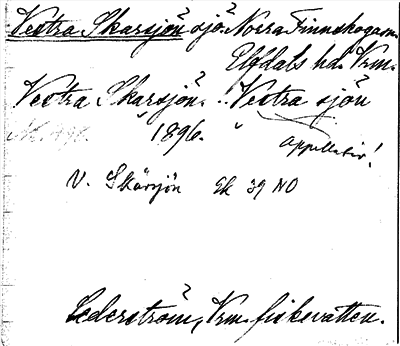 Vestra Skarsjön sjö? Norra Finnskogarna
Elfdals hd. Vrm.
Vestra Skarsjön. Vestra sjön
" 1896. " appellativ!
V. Skärsjön Gk 39 NO
Cederström, Vrm. fiskevatten.